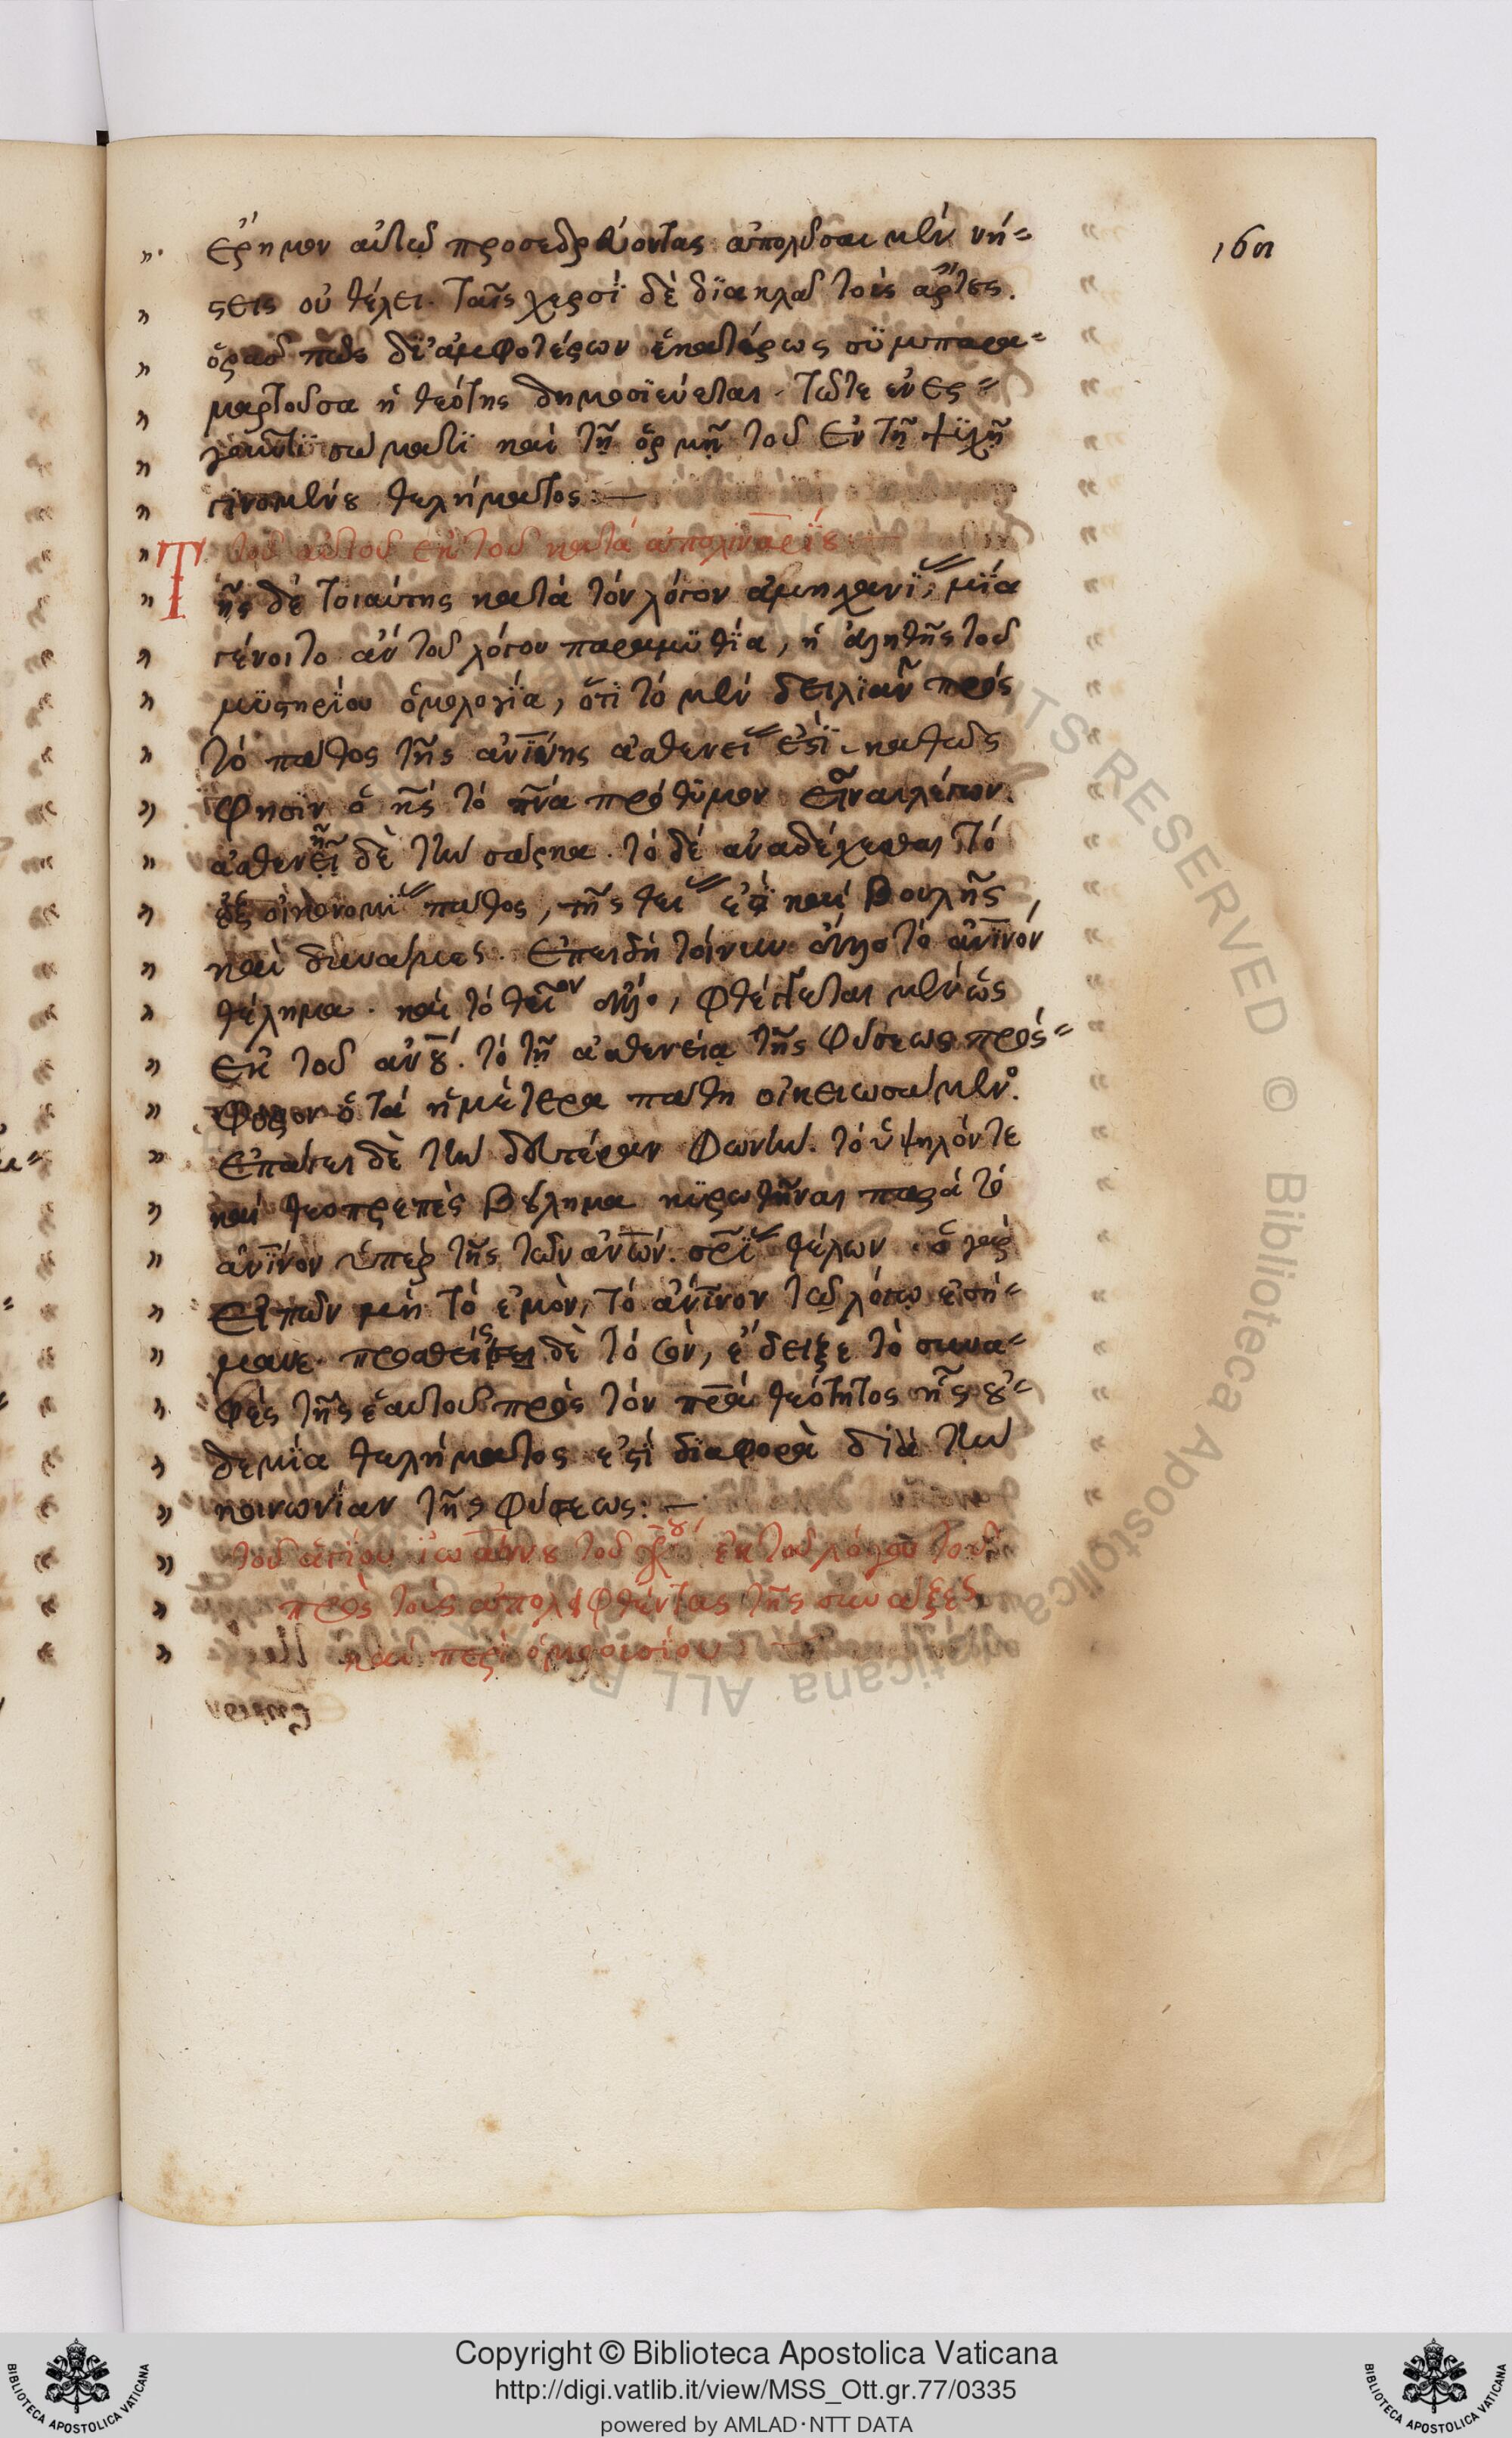 ἔρημον αὐτῷ προσεδρεύοντας ἀπολῦσαι μὲν νή=
στεις οὐ θέλει. ταῖς χερσὶ δὲ διακλᾷ τοὺς ἄρτους.
ὁρᾷς πῶς δι' ἀμφοτέρων ἑκατέρως συμπαρο=
μαρτοῦσα ἡ θεότης δημοσιεύεται. τῶτε ἐνερ=
γοῦντι σώματι καὶ τῇ ὁρμῇ τοῦ ἐν τῇ ψυχῇ
γινομένου θελήματος: —
τοῦ αὐτοῦ ἐκ τοῦ κατὰ ἀπολιναρίου: —
Τῆς δὲ τοιαύτης κατὰ τὸν λόγον ἀμηχανίας, μία
γένοιτο ἂν τοῦ λόγου παραμυθία, ἡ ἀληθὴς τοῦ
μυστηρίου ὁμολογία, ὅτι τὸ μὲν δειλιᾶν πρὸς
τὸ πάθος τῆς ἀνίνης ἀσθενείας ἐστὶ. καθὼς
φησὶν ὁ κς τὸ πνα πρόθυμον εἶναι λέγων.
ἀσθενῆ δὲ τὴν σάρκα. τὸ δὲ ἀναδέχεσθαι τὸ
ἐξ οἰκονομίας πάθος, τῆς θείας ἐστὶ καὶ βουλῆς
καὶ δυνάμεως. ἐπειδὴ τοίνυν ἄλλο τὸ ἀνινον
θέλημα. καὶ τὸ θεῖον ἄλλο, φθέγγεται μὲν ὡς
ἐκ τοῦ ἀνου. τὸ τῇ ἀσθενείᾳ τῆς φύσεως πρόσ=
φορον ὁ τὰ ἡμέτερα πάθη οἰκειωσάμενος.
ἐπάγει δὲ τὴν δευτέραν φωνὴν. τὸ ὑψηλόν τε
καὶ θεοπρεπὲς βούλημα κυρωθῆναι παρὰ τὸ
ἀνινον ὑπὲρ τῆς τῶν ἀνων. σριας θέλων. ὁ γὰρ
εἰπὼν μὴ τὸ ἐμὸν, τὸ ἀνινον τῷ λόγῳ ἐσή=
μανε. προσθεὶς δὲ τὸ σὸν, ἔδειξε τὸ συνα=
φὲς τῆς ἑαυτοῦ πρὸς τὸν πρα θεότητος ἧς οὐ=
δεμία θελήματος ἐστὶ διαφορὰ διὰ τὴν
κοινωνίαν τῆς φύσεως: —
τοῦ ἁγίου ἰωάννου τοῦ χρου ἐκ τοῦ λόγου τοῦ
πρὸς τοὺς ἀπολειφθέντας τῆς συνάξεως
καὶ περὶ ὁμοουσίου: —
Copyright © Biblioteca Apostolica Vaticana
http://digi.vatlib.it/view/MSS_Ott.gr.77/0335
powered by AMLAD·NTT DATA